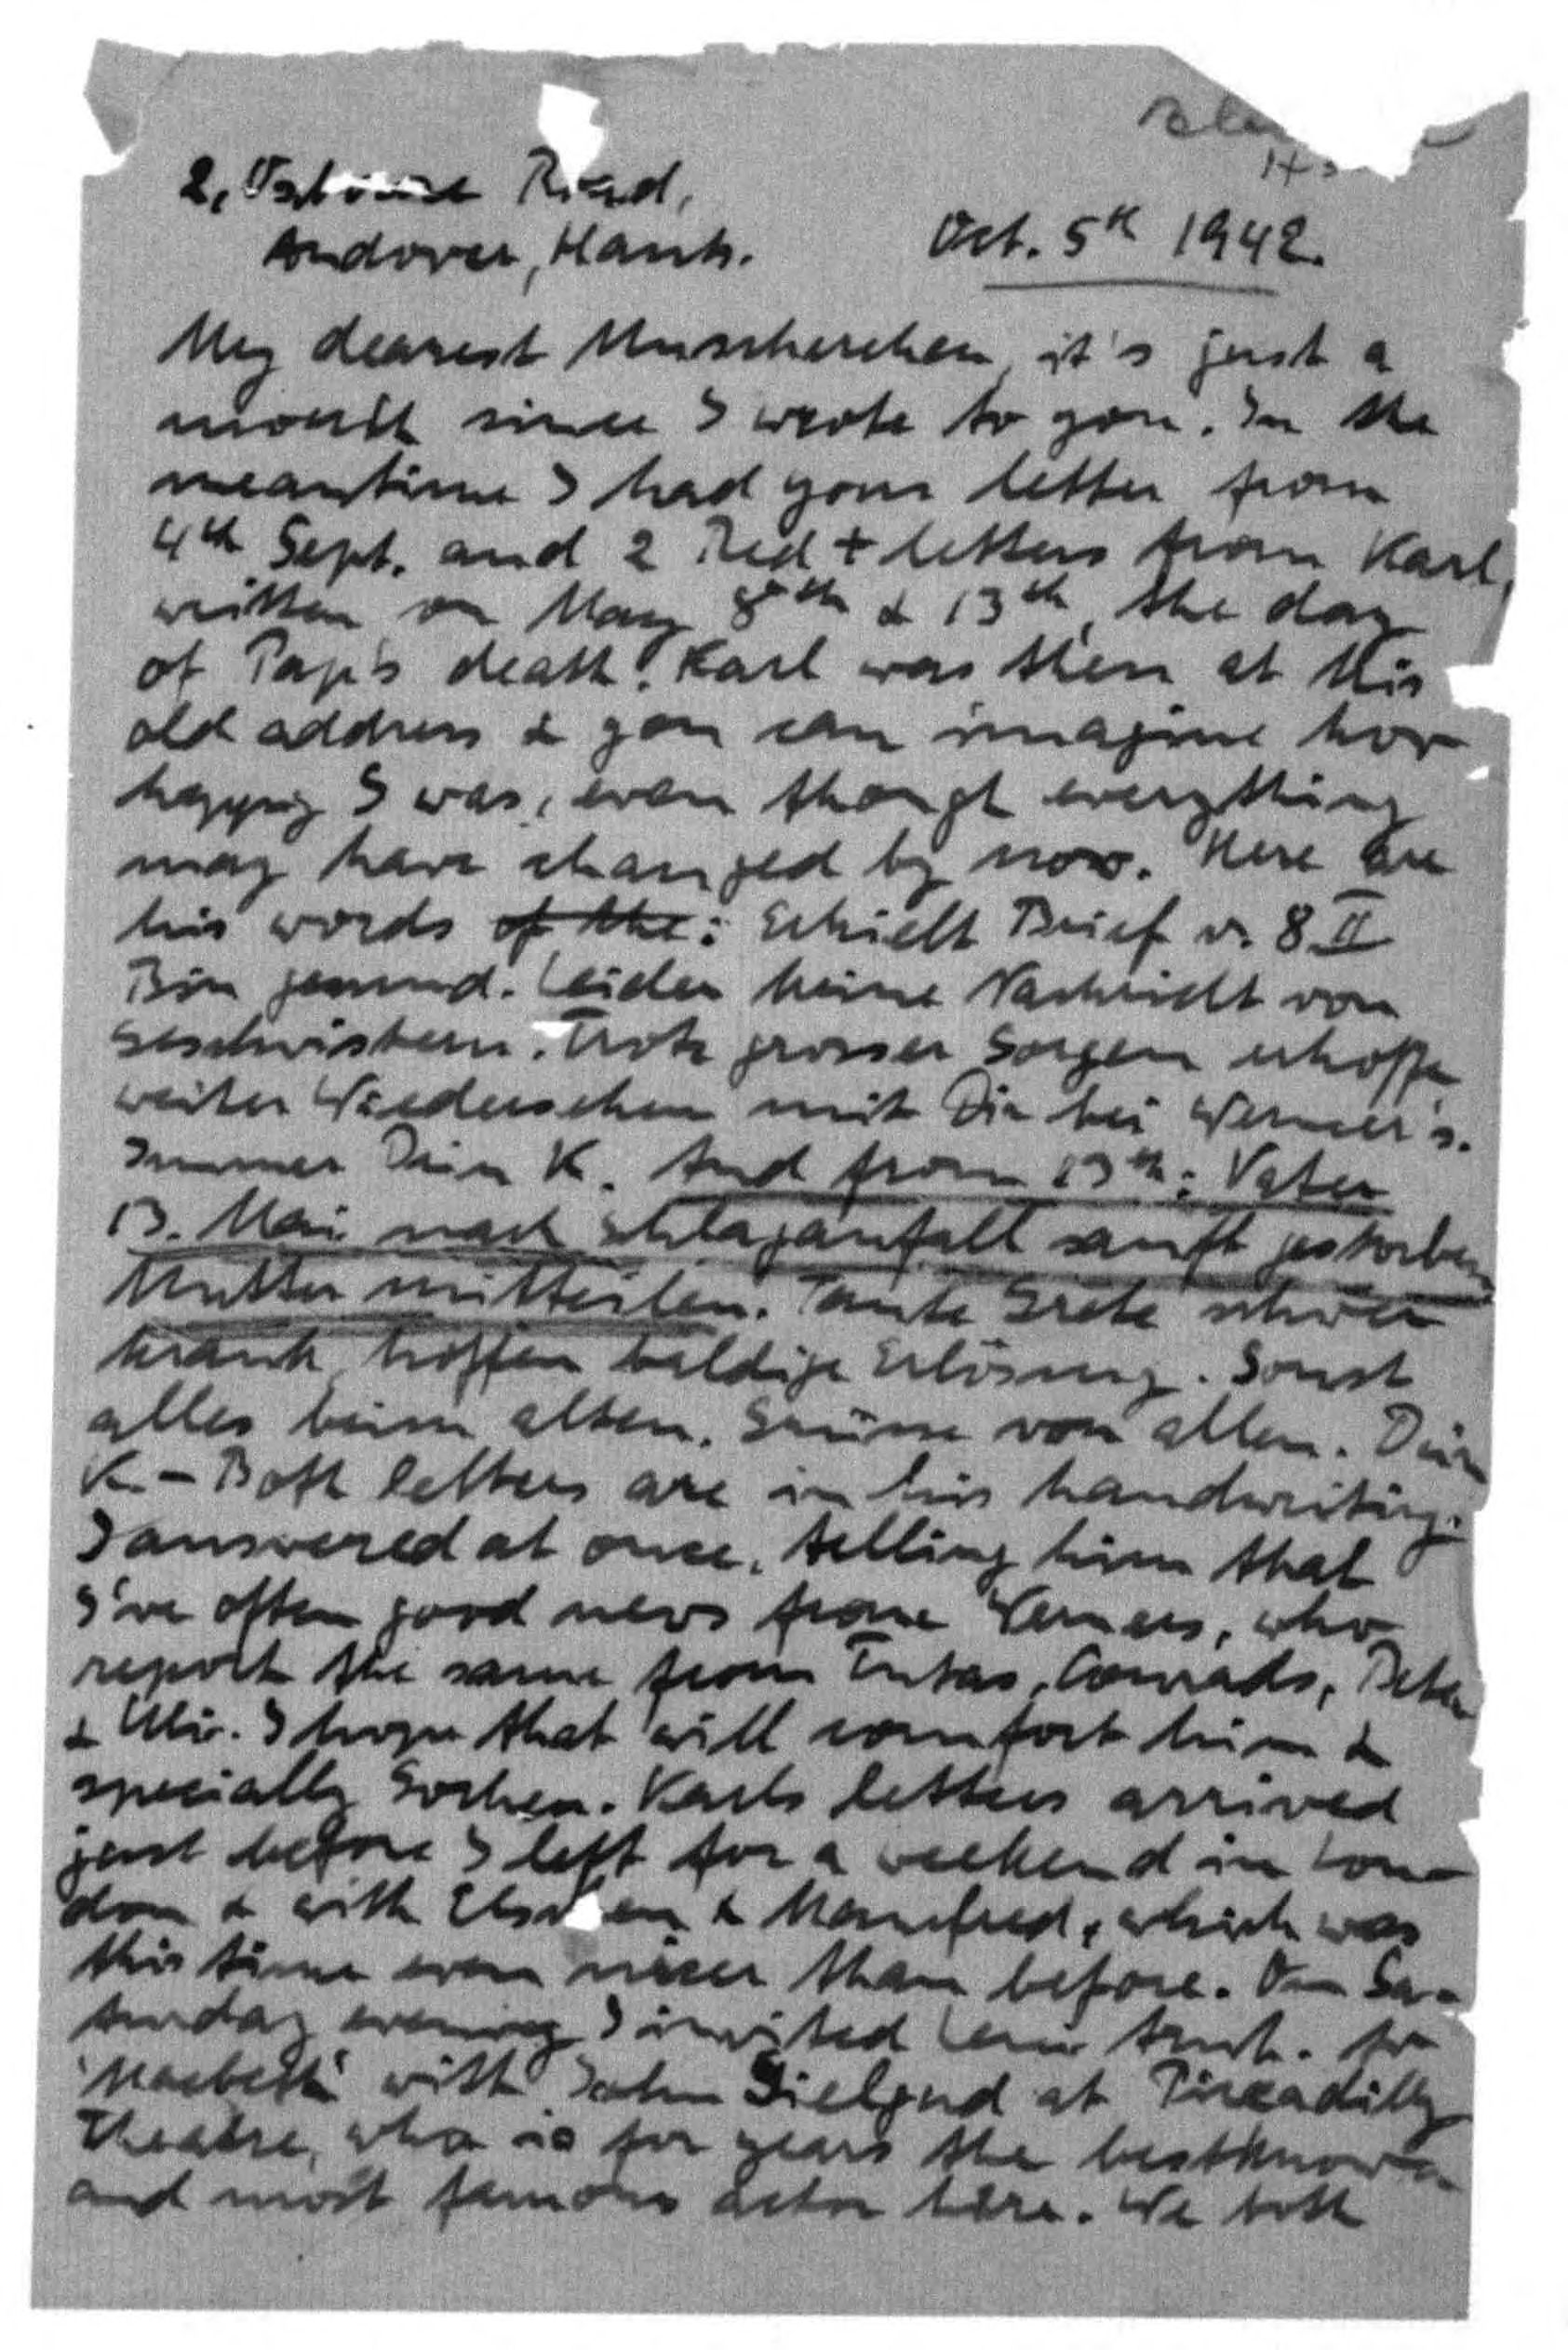 2, Road,
Andover, Hants. Oct. 5th 1942.
My dearest Muscherchen, it's just a
month since I wrote to you. In the
meantime I had your letter from
4th Sept. and 2 Red + letters from Karl,
written on May 8th & 13th, the day
of Pap's death. Karl was then at his
old address & you can imagine how
happy I was, even though everything
may have changed by now. Here are
his words of the: Erhielt Brief v. 8 II
Bin gesund. Leider keine Nachricht von
Geschwistern. Trotz grosser Sorgen erhoffe
weiter Wiedersehen mit Dir bei Werner's.
Immer Dein K. And from 13th: Vater
13. Mai nach Schlaganfall sanft gestorben
Mutter mitteilen. Tante Grete schwer
krank, hoffen baldige Erlösung. Sonst
alles beim alten. Grüsse von allen. Dein
K. - Both letters are in his handwriting.
I answered at once, telling him that
I've often good news from Werners, who
report the same from Conrads, Peter
& Uli. I hope that will comfort him &
specially Karls letters arrived
just before I left for a weekend in Lon-
don & with & Manfred, which was
this time even nicer than before. On Sa-
turday evening I invited to
'Macbeth' with John Gielgud at Piccadilly
Theatre, who is for years the bestknown
and most famous actor here. We both